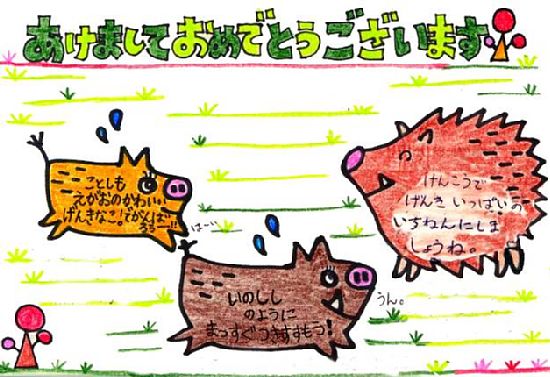 あけましておめでとうございます
ことしも
えがおのかわいい
げんきなこ!でがんばろ
うー!!
はーい
けんこうで
げんき いっぱいの
いちねんにしま
しょうね。
いのしし
のように
まっすぐつきすすもう!
うん。